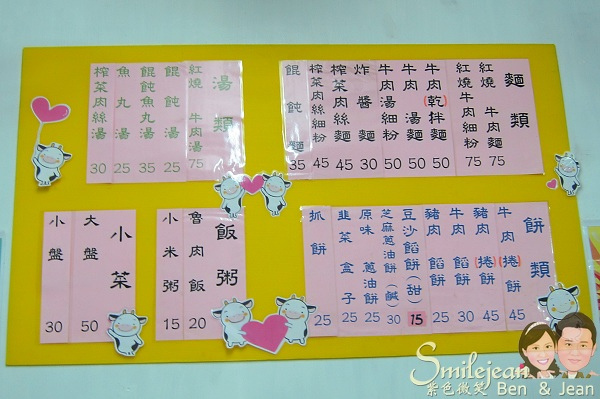 麵類
紅燒牛肉麵 75
紅燒牛肉細粉 75
牛肉(乾)拌麵 50
牛肉湯麵 50
牛肉湯細粉 50
炸醬麵 30
榨菜肉絲麵 45
榨菜肉絲細粉 45
餛飩麵 35
湯類
紅燒牛肉湯 75
餛飩湯 25
餛飩魚丸湯 35
魚丸湯 25
榨菜肉絲湯 30
餅類
牛肉(捲)餅 45
豬肉(捲)餅 45
牛肉餡餅 30
豬肉餡餅 25
豆沙餡餅(甜) 15
芝麻蔥油餅(鹹) 30
原味蔥油餅 25
韮菜盒子 25
抓餅 25
飯粥
魯肉飯 20
小米粥 15
小菜
大盤 50
小盤 30
Smilejean
紫色微笑 Ben & Jean